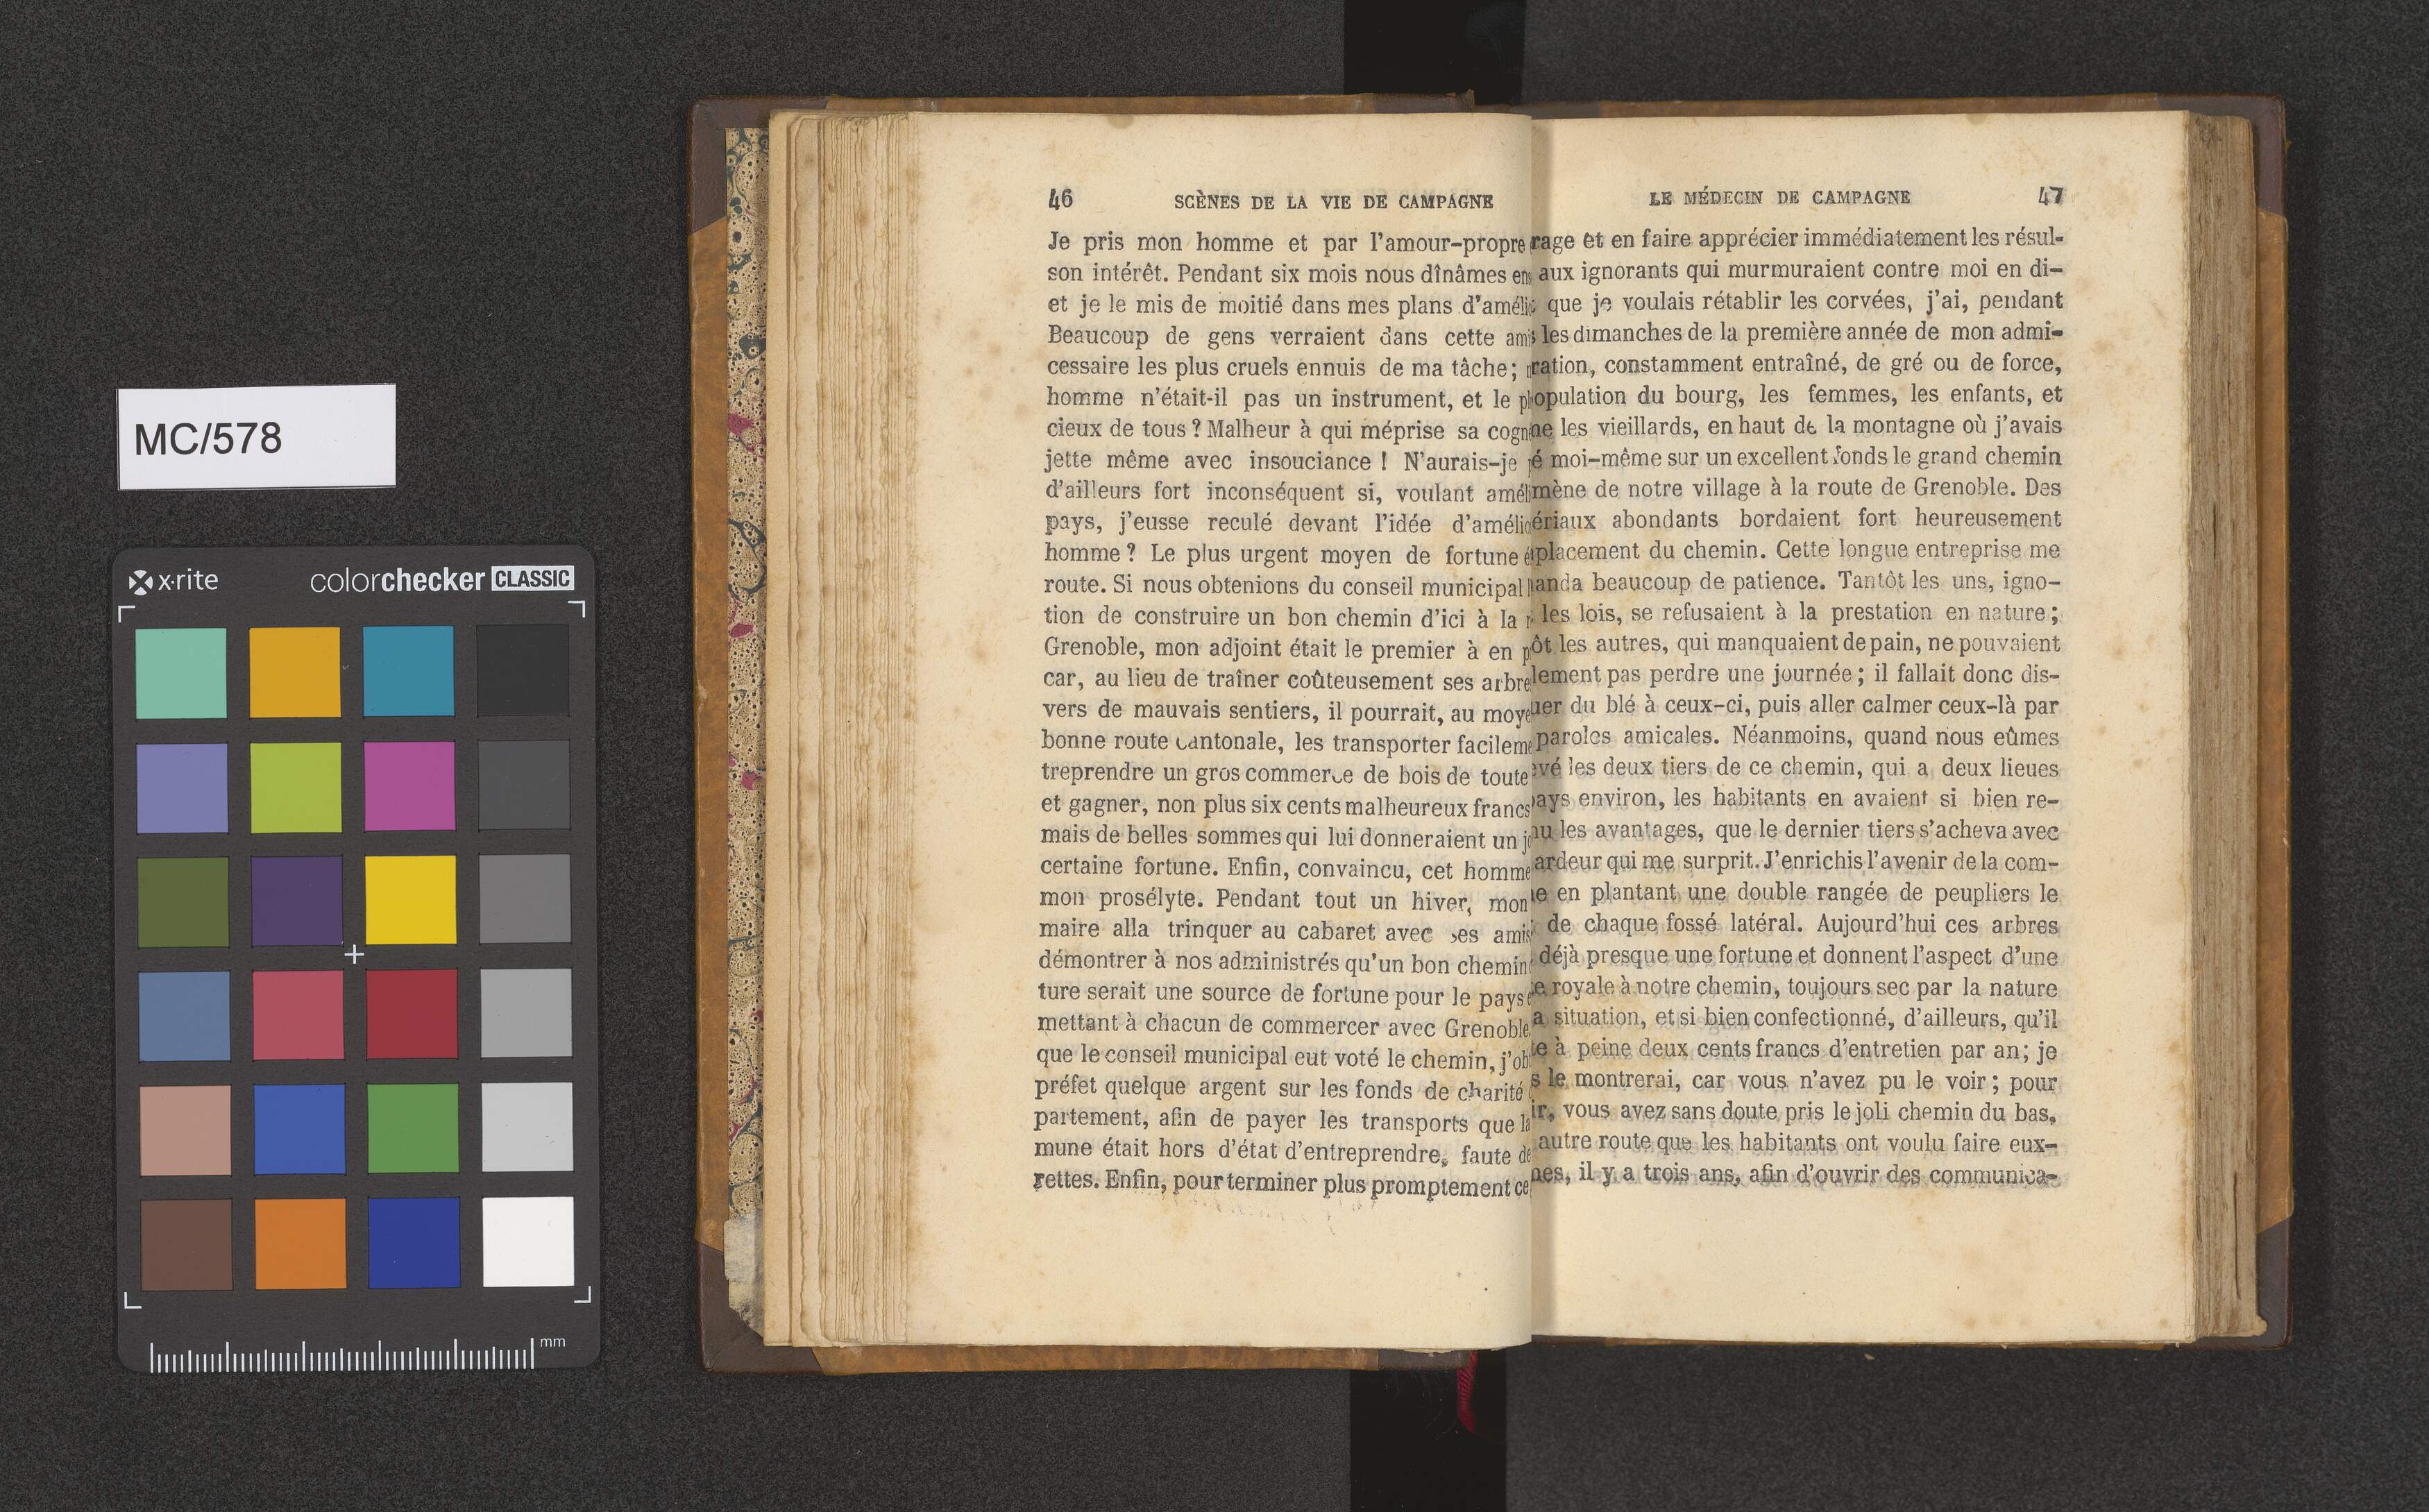 MC/578
x·rite colorchecker CLASSIC
mm
46 SCÈNES DE LA VIE DE CAMPAGNE
Je pris mon homme et par l'amour-propre
son intérêt. Pendant six mois nous dînâmes
et je le mis de moitié dans mes plans
Beaucoup de gens verraient dans cette
cessaire les plus cruels ennuis de ma tâche;
homme n'était-il pas un instrument, et le
cieux de tous ? Malheur à qui méprise sa
jette même avec insouciance ! N'aurais-je
d'ailleurs fort inconséquent si, voulant
pays, j'eusse reculé devant l'idée
homme ? Le plus urgent moyen de fortune
route. Si nous obtenions du conseil municipal
tion de construire un bon chemin d'ici à la
Grenoble, mon adjoint était le premier à en
car, au lieu de traîner coûteusement ses
vers de mauvais sentiers, il pourrait, au
bonne route cantonale, les transporter
treprendre un gros commerce de bois de toute
et gagner, non plus six cents malheureux francs
mais de belles sommes qui lui donneraient un
certaine fortune. Enfin, convaincu, cet homme
mon prosélyte. Pendant tout un hiver, mon
maire alla trinquer au cabaret avec ses amis
démontrer à nos administrés qu'un bon chemin
ture serait une source de fortune pour le pays
mettant à chacun de commercer avec Grenoble
que le conseil municipal eut voté le chemin,
préfet quelque argent sur les fonds de charité
partement, afin de payer les transports que
mune était hors d'état d'entreprendre, faute
rettes. Enfin, pour terminer plus promptement
LE MÉDECIN DE CAMPAGNE 47
rage et en faire apprécier immédiatement les résul-
aux ignorants qui murmuraient contre moi en di-
que je voulais rétablir les corvées, j'ai, pendant
les dimanches de la première année de mon admi-
ration, constamment entraîné, de gré ou de force,
opulation du bourg, les femmes, les enfants, et
les vieillards, en haut de la montagne où j'avais
é moi-même sur un excellent fonds le grand chemin
mène de notre village à la route de Grenoble. Des
ériaux abondants bordaient fort heureusement
placement du chemin. Cette longue entreprise me
anda beaucoup de patience. Tantôt les uns, igno-
les lois, se refusaient à la prestation en nature;
ôt les autres, qui manquaient de pain, ne pouvaient
lement pas perdre une journée; il fallait donc dis-
uer du blé à ceux-ci, puis aller calmer ceux-là par
paroles amicales. Néanmoins, quand nous eûmes
vé les deux tiers de ce chemin, qui a deux lieues
ays environ, les habitants en avaient si bien re-
nu les avantages, que le dernier tiers s'acheva avec
ardeur qui me surprit. J'enrichis l'avenir de la com-
en plantant une double rangée de peupliers le
de chaque fossé latéral. Aujourd'hui ces arbres
déjà presque une fortune et donnent l'aspect d'une
royale à notre chemin, toujours sec par la nature
a situation, et si bien confectionné, d'ailleurs, qu'il
te à peine deux cents francs d'entretien par an; je
s le montrerai, car vous n'avez pu le voir; pour
ir, vous avez sans doute pris le joli chemin du bas,
autre route que les habitants ont voulu faire eux-
nes, il y a trois ans, afin d'ouvrir des communica-